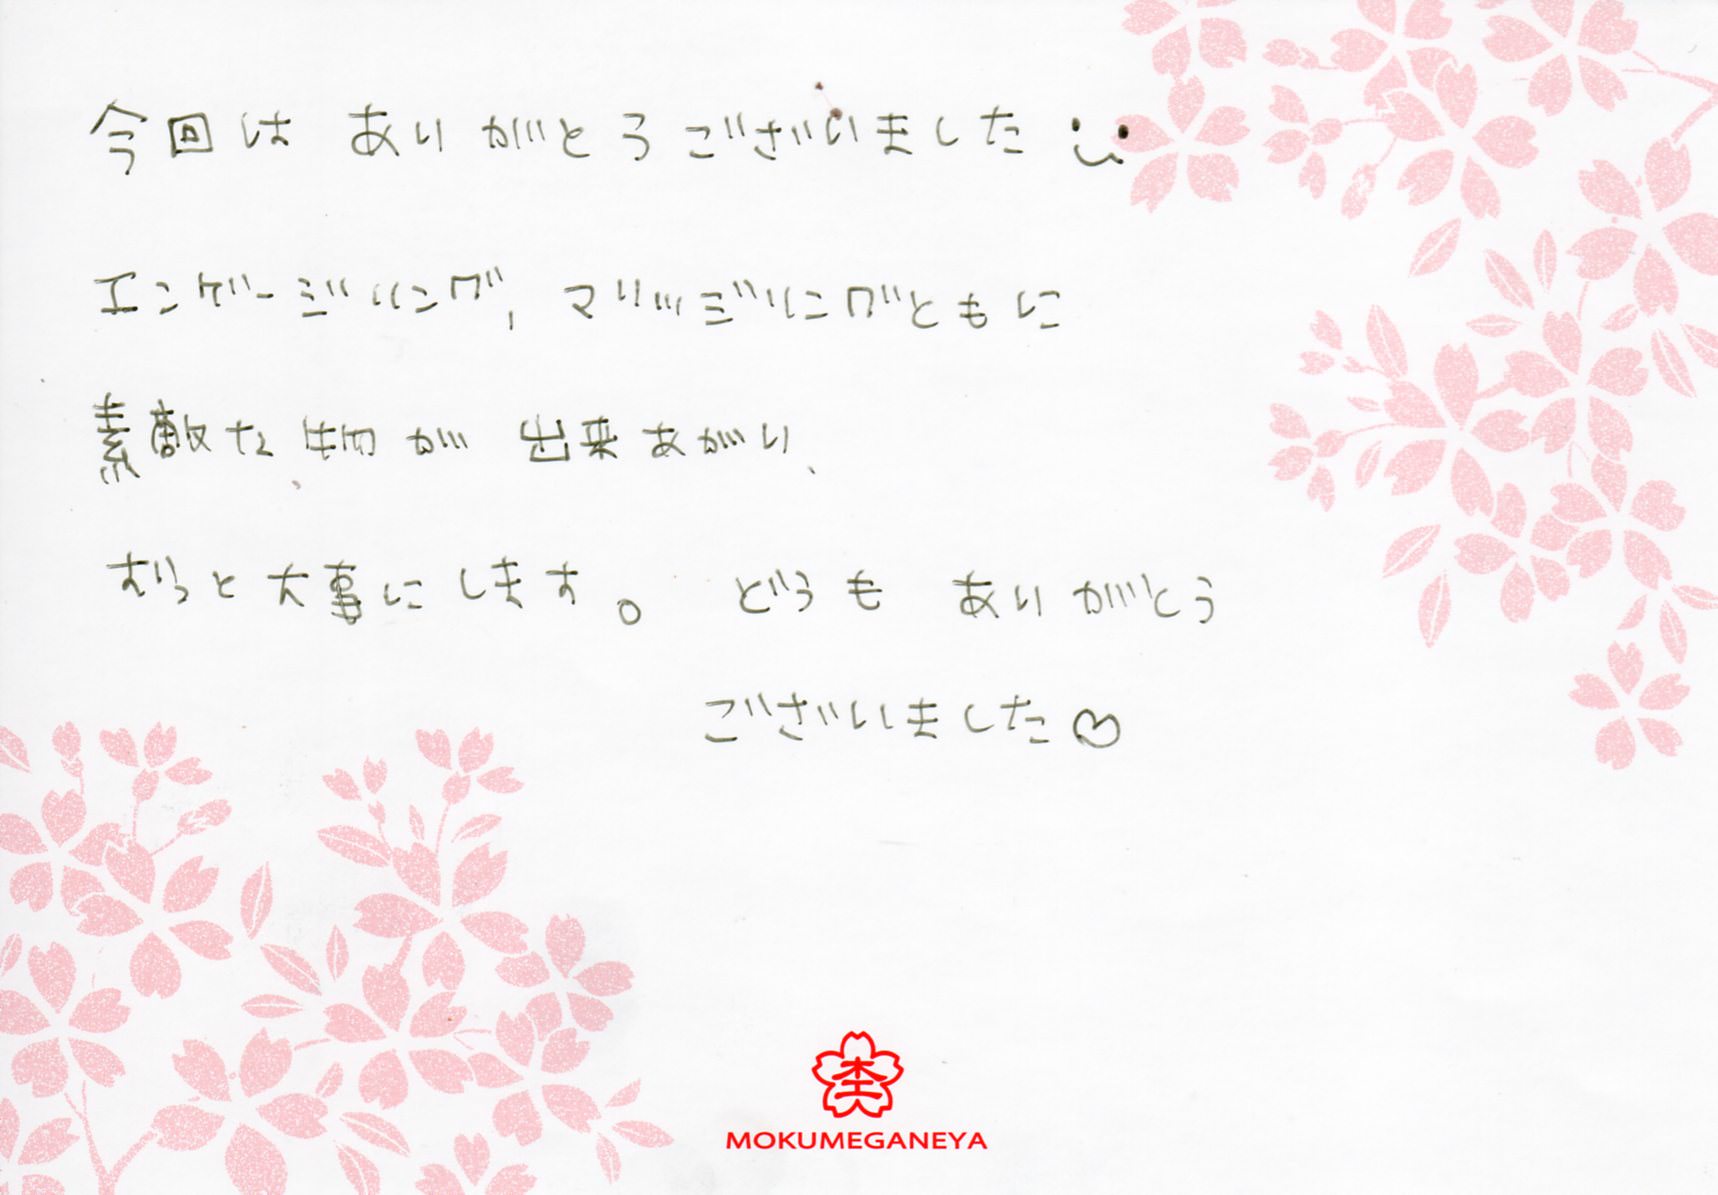 今回は ありがとうございました
エンゲージリング, マリッジリングともに
素敵な物が 出来あがり、
ずっと大事にします。 どうも ありがとう
ございました♡
MOKUMEGANEYA